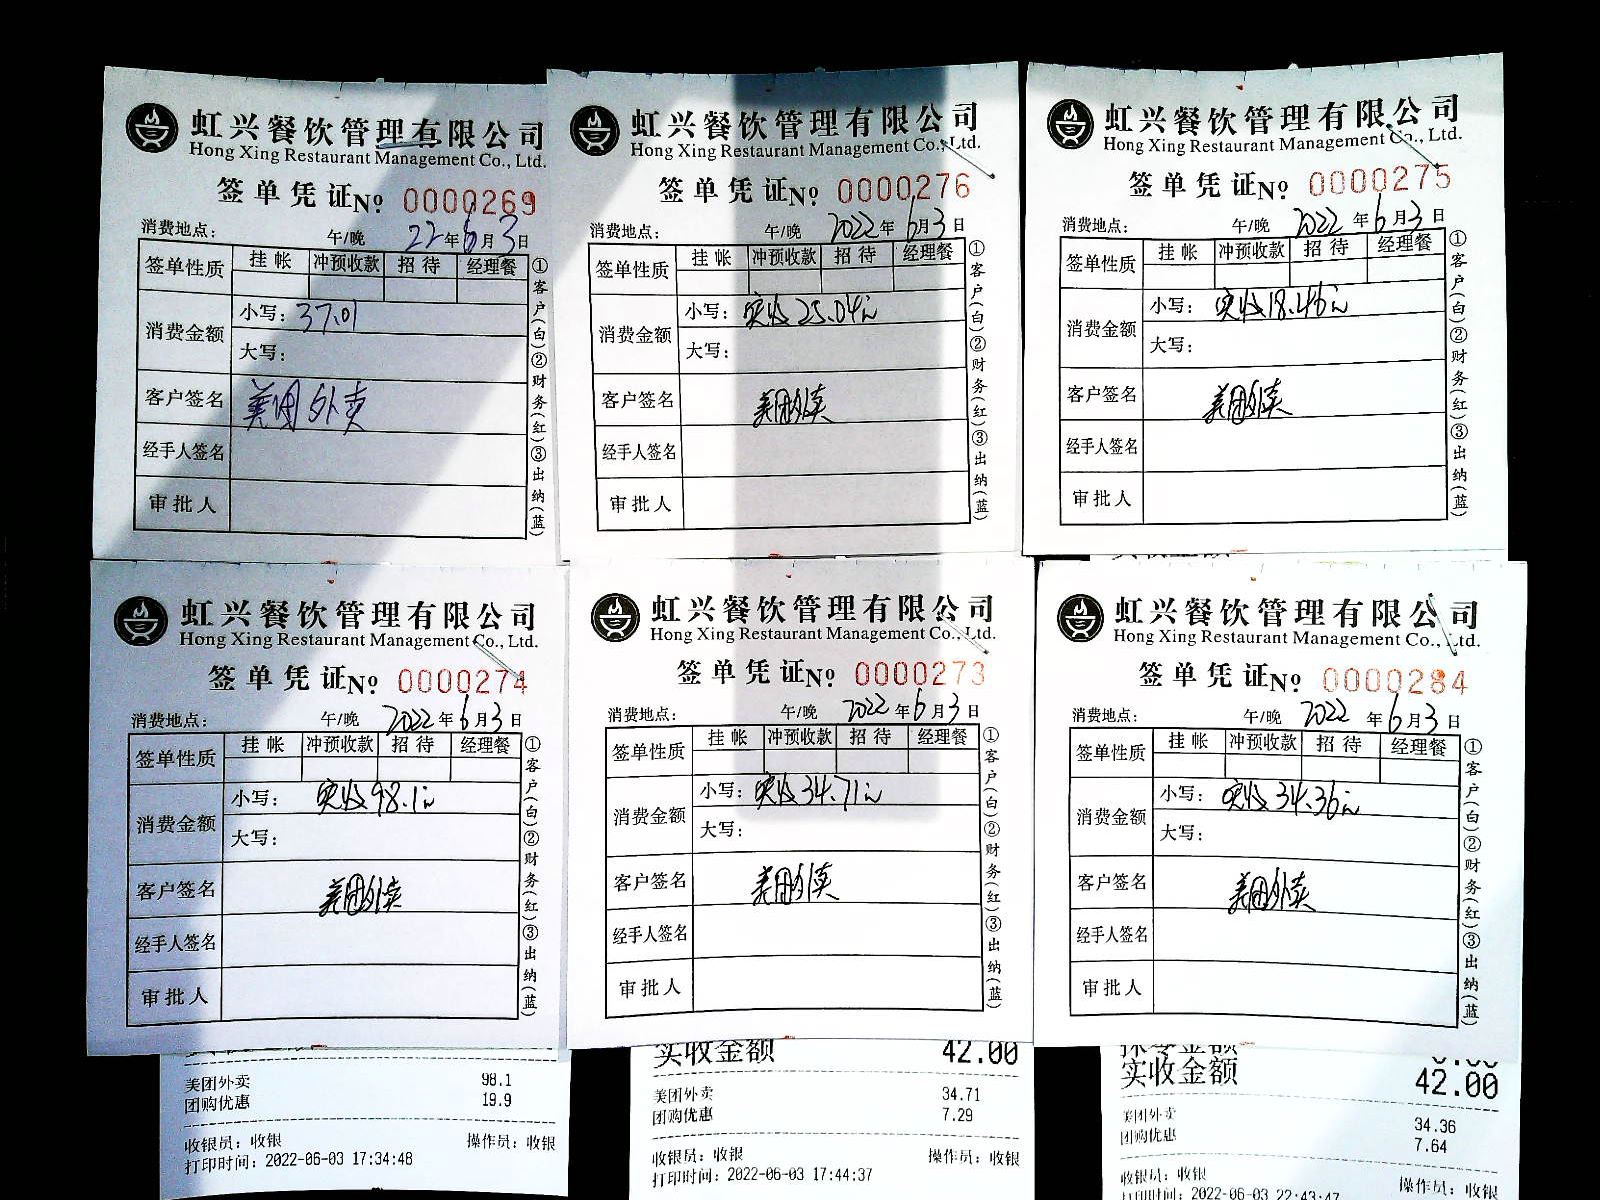 虹兴餐饮管理有限公司
Hong Xing Restaurant Management Co., Ltd.
签单凭证No 0000269
消费地点: 午/晚 22年6月3日
签单性质 挂帐 冲预收款 招待 经理餐
消费金额 小写: 37.01
大写:
客户签名 美团外卖
经手人签名
审批人
①客户(白)②财务(红)③出纳(蓝)
虹兴餐饮管理有限公司
Hong Xing Restaurant Management Co., Ltd.
签单凭证No 0000276
消费地点: 午/晚 2022年6月3日
签单性质 挂帐 冲预收款 招待 经理餐
消费金额 小写: 实收25.04元
大写:
客户签名 美团外卖
经手人签名
审批人
①客户(白)②财务(红)③出纳(蓝)
虹兴餐饮管理有限公司
Hong Xing Restaurant Management Co., Ltd.
签单凭证No 0000275
消费地点: 午/晚 2022年6月3日
签单性质 挂帐 冲预收款 招待 经理餐
消费金额 小写: 实收18.46元
大写:
客户签名 美团外卖
经手人签名
审批人
①客户(白)②财务(红)③出纳(蓝)
虹兴餐饮管理有限公司
Hong Xing Restaurant Management Co., Ltd.
签单凭证No 0000274
消费地点: 午/晚 2022年6月3日
签单性质 挂帐 冲预收款 招待 经理餐
消费金额 小写: 实收98.1元
大写:
客户签名 美团外卖
经手人签名
审批人
①客户(白)②财务(红)③出纳(蓝)
美团外卖 98.1
团购优惠 19.9
收银员: 收银 操作员: 收银
打印时间: 2022-06-03 17:34:48
虹兴餐饮管理有限公司
Hong Xing Restaurant Management Co., Ltd.
签单凭证No 0000273
消费地点: 午/晚 2022年6月3日
签单性质 挂帐 冲预收款 招待 经理餐
消费金额 小写: 实收34.71元
大写:
客户签名 美团外卖
经手人签名
审批人
①客户(白)②财务(红)③出纳(蓝)
实收金额 42.00
美团外卖 34.71
团购优惠 7.29
收银员: 收银 操作员: 收银
打印时间: 2022-06-03 17:44:37
虹兴餐饮管理有限公司
Hong Xing Restaurant Management Co., Ltd.
签单凭证No 0000284
消费地点: 午/晚 2022年6月3日
签单性质 挂帐 冲预收款 招待 经理餐
消费金额 小写: 实收34.36元
大写:
客户签名 美团外卖
经手人签名
审批人
①客户(白)②财务(红)③出纳(蓝)
实收金额 42.00
美团外卖 34.36
团购优惠 7.64
收银员: 收银 操作员: 收银
打印时间: 2022-06-03 22:43:47